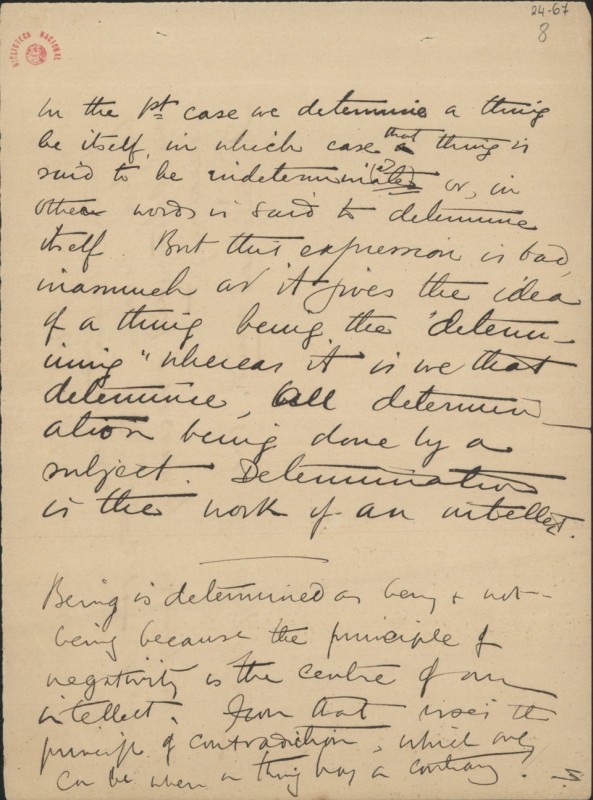 24-67
8
BIBLIOTECA NACIONAL
In the 1st case we determine a thing
be itself, in which case that thing is
said to be indeterminated (?) or, in
other words is said to determine
itself. But this expression is bad,
inasmuch as it gives the idea
of a thing being the "determ-
ining" whereas it is we that
determine, all determin-
ation being done by a
subject. Determination
is the work of an intellect.
Being is determined as being & not-
being because the principle of
negativity is the centre of our
intellect. From that rises the
principle of contradiction, which only
can be when a thing has a contrary.